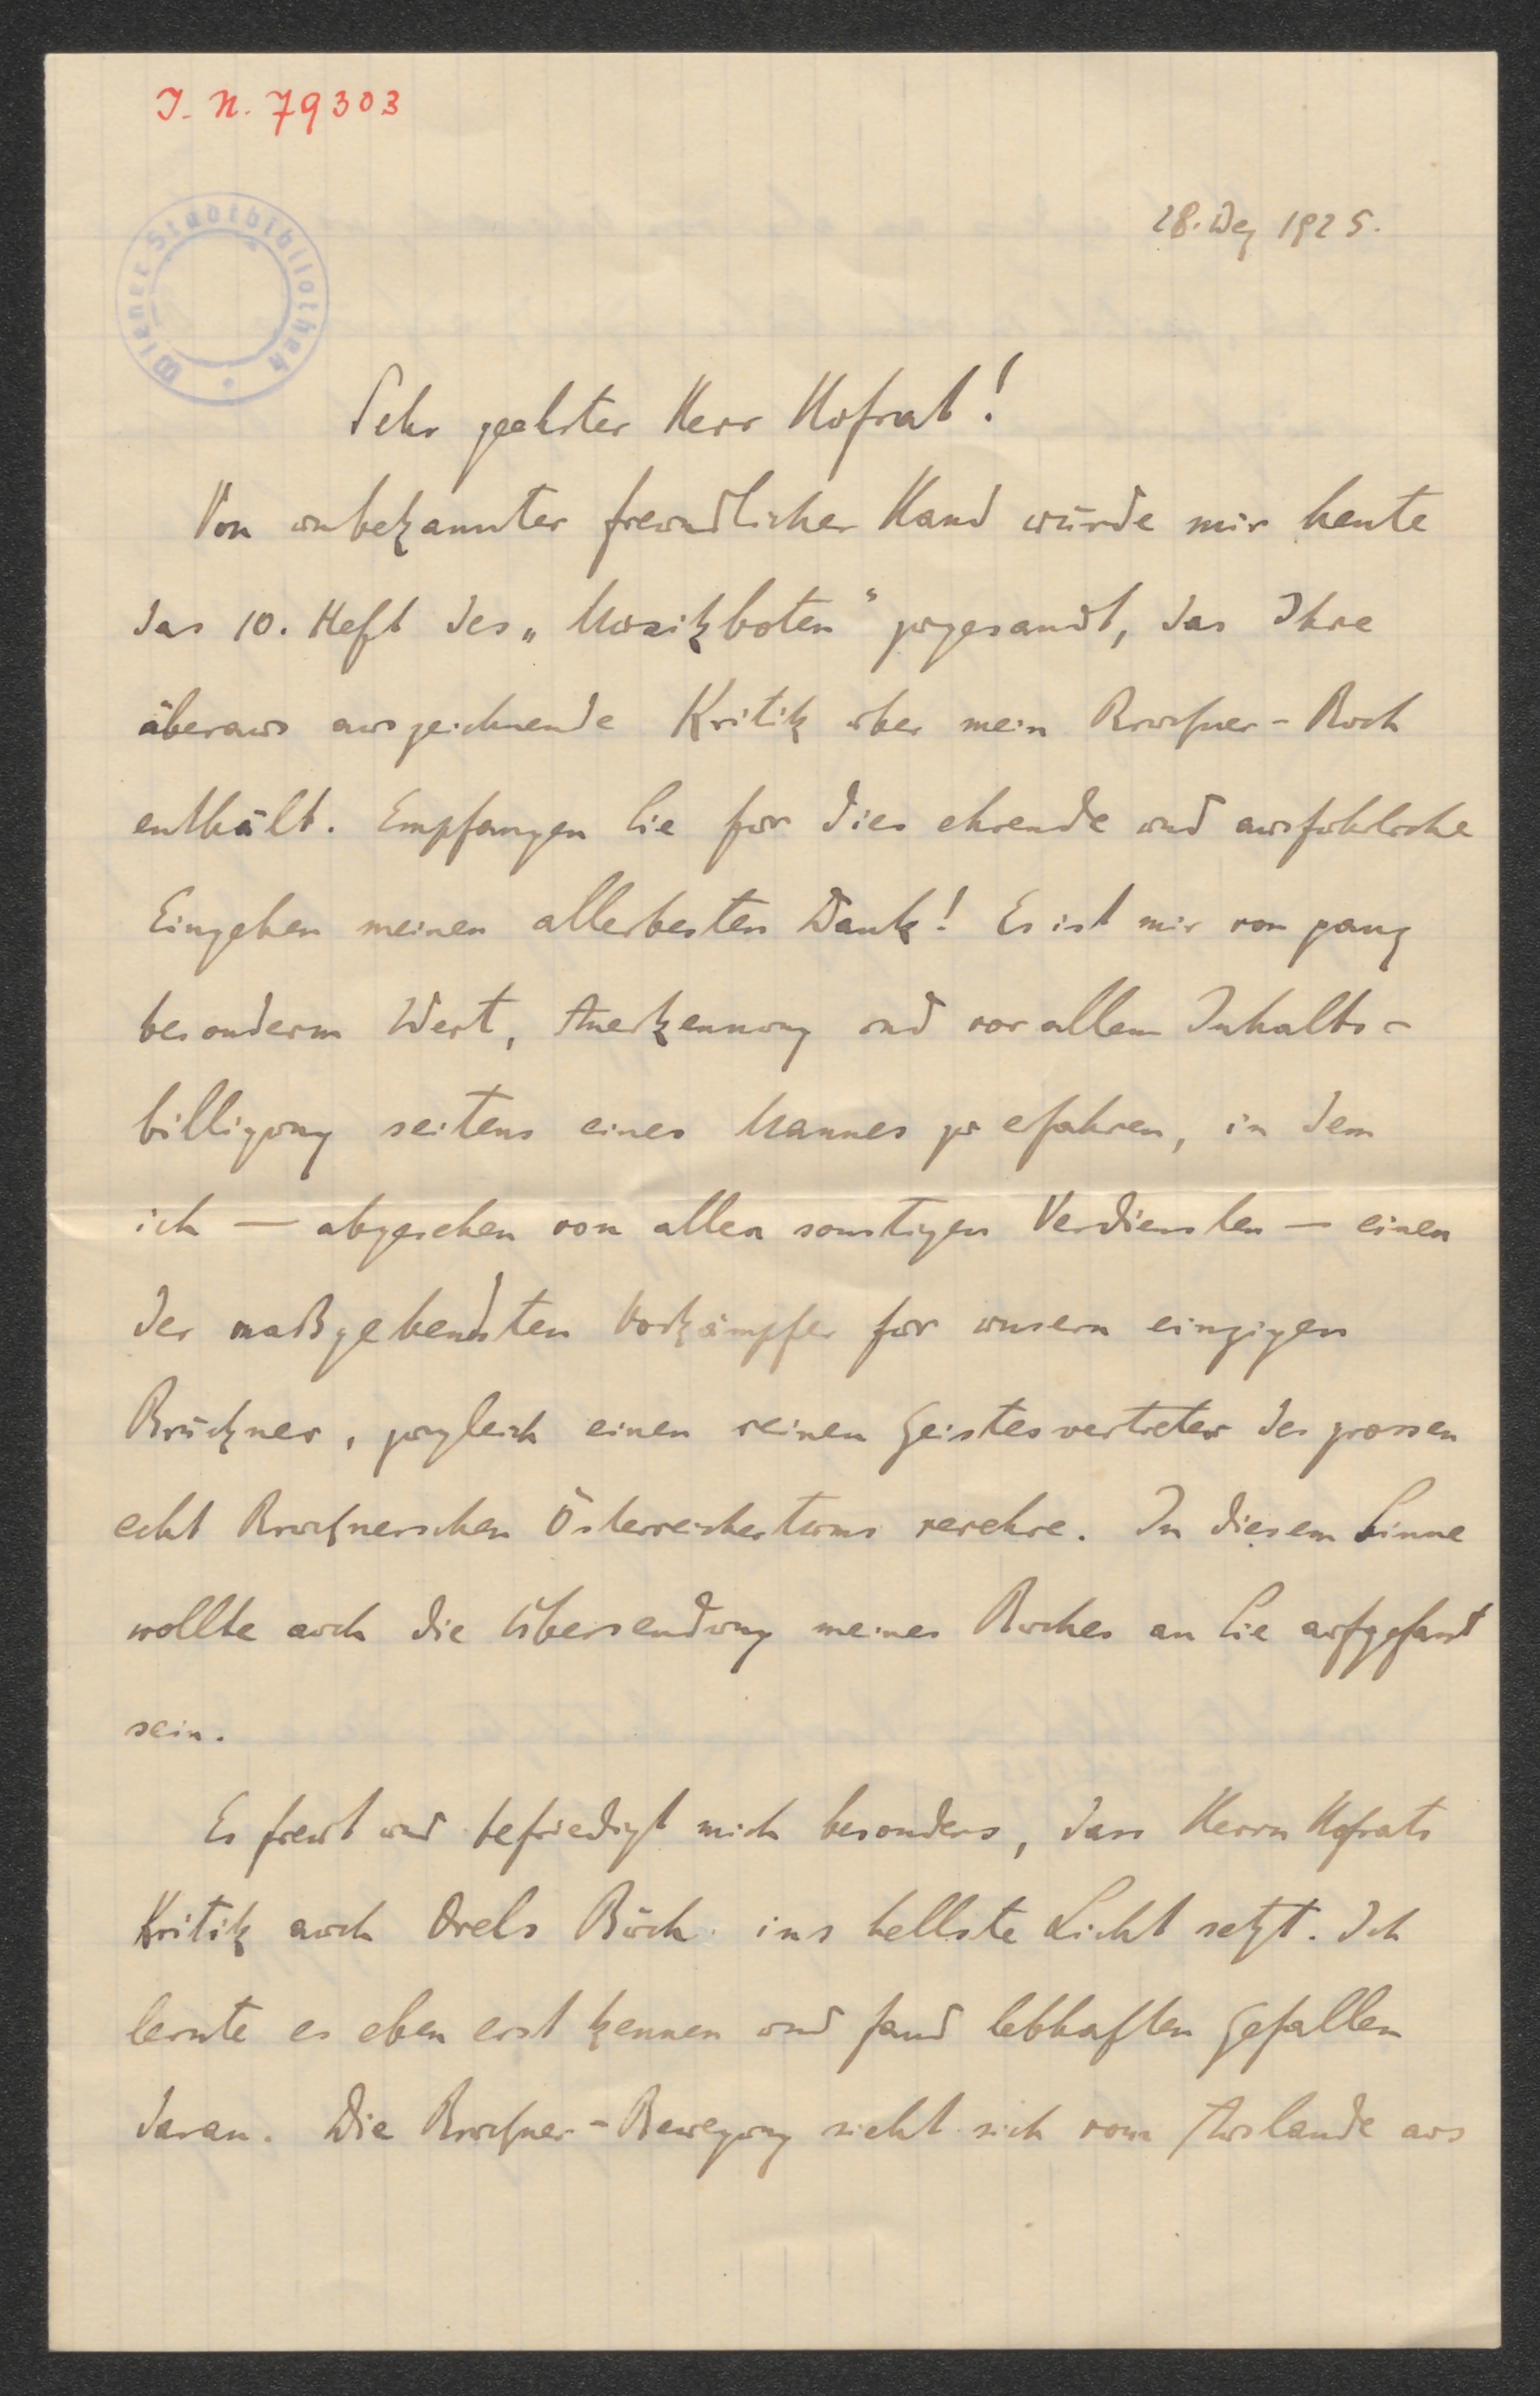 I. N. 79303
Wiener Stadtbibliothek
28. Dez 1925.
Sehr geehrter Herr Hofrat!
Von unbekannter freundlicher Hand wurde mir heute
das 10. Heft des „Musikboten“ zugesandt, das Ihre
überaus auszeichnende Kritik über mein Bruckner-Buch
enthält. Empfangen Sie für dies ehrende und ausführliche
Eingehen meinen allerbesten Dank! Es ist mir von ganz
besonderm Wert, Anerkennung und vor allem Inhalts-
billigung seitens eines Mannes zu erfahren, in dem
ich — abgesehen von allen sonstigen Verdiensten — einen
der maßgebendsten Vorkämpfer für unsern einzigen
Bruckner, zugleich einen reinen Geistesvertreter des grossen
echt Brucknerschen Österreichertums verehre. In diesem Sinne
wollte auch die Übersendung meines Buches an Sie aufgefasst
sein.
Es freut und befriedigt mich besonders, dass Herrn Hofrats
Kritik auch Orels Buch ins hellste Licht setzt. Ich
lernte es eben erst kennen und fand lebhaften Gefallen
daran. Die Bruckner-Bewegung sieht sich vom Auslande aus